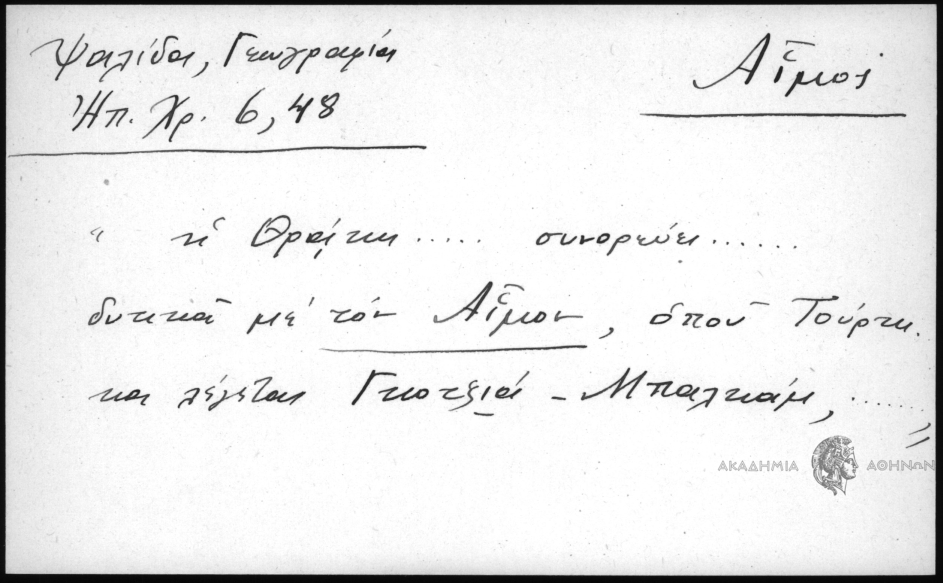 Ψαλίδα, Γεωγραφία
Ἠπ. Χρ. 6, 48
Αἷμος
“ ἡ Θρᾴκη ..... συνορεύει ......
δυτικὰ μὲ τὸν Αἷμον, ὁποῦ Τούρκι.
κα λέγεται Γκοτζιά - Μπαλκάμ, ...... ”
ΑΚΑΔΗΜΙΑ ΑΘΗΝΩΝ